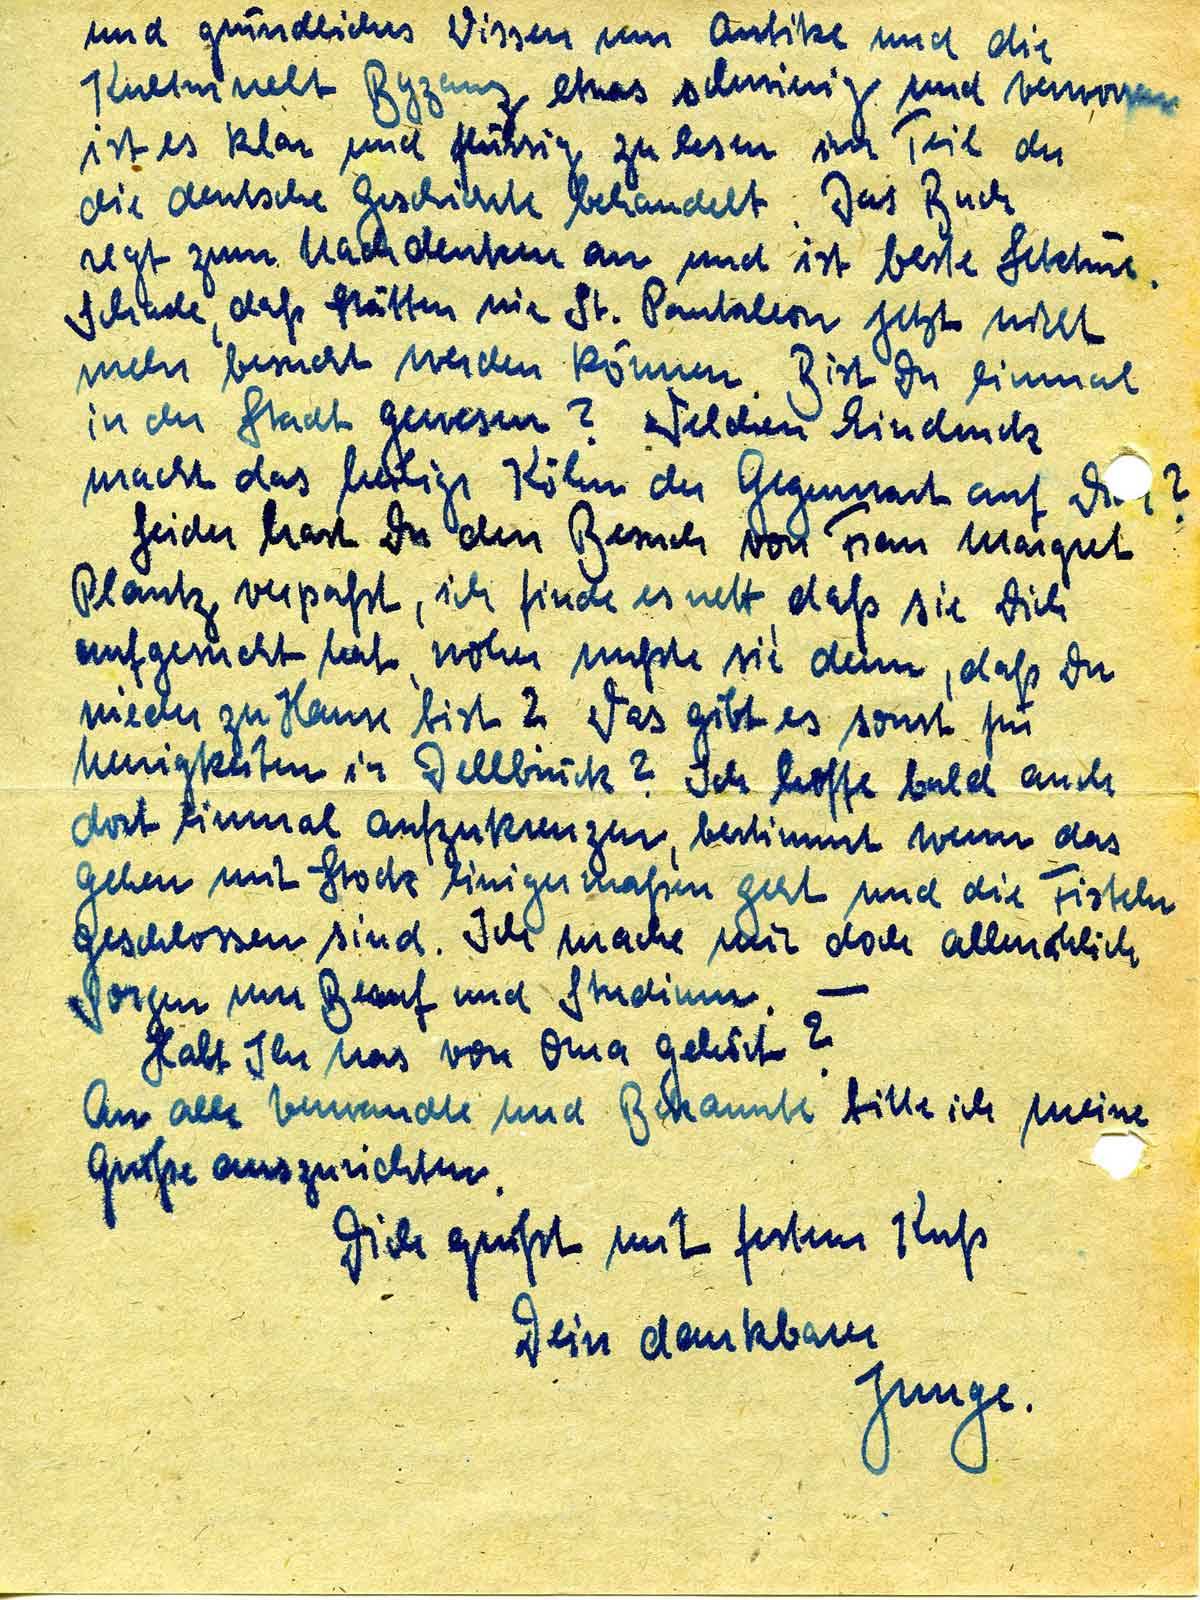 und gründliches Wissen um Antike und die
Kulturwelt Byzanz etwas schwierig und verworren
ist es klar und flüssig zu lesen im Teil der
die deutsche Geschichte behandelt. Das Buch
regt zum Nachdenken an und ist beste Lektüre.
Schade, daß Stätten wie St. Pantaleon jetzt nicht
mehr besucht werden können. Bist Du einmal
in der Stadt gewesen? Welchen Eindruck
macht das heilige Köln der Gegenwart auf Dich?
Leider hast Du den Besuch von Frau Margret
Plantz verpaßt, ich finde es nett, daß sie Dich
aufgesucht hat, woher wußte sie denn, daß Du
wieder zu Hause bist? Was gibt es sonst für
Neuigkeiten in Dellbrück? Ich hoffe bald auch
dort einmal aufzukreuzen, bestimmt wenn das
gehen mit Stock einigermaßen geht und die Fisteln
geschlossen sind. Ich mache mir doch allmählich
Sorgen um Beruf und Studium. —
Habt Ihr was von Oma gehört?
An alle Verwandte und Bekannte bitte ich meine
Grüße auszurichten.
Dich grüßt mit festem Kuß
Dein dankbarer
Junge.